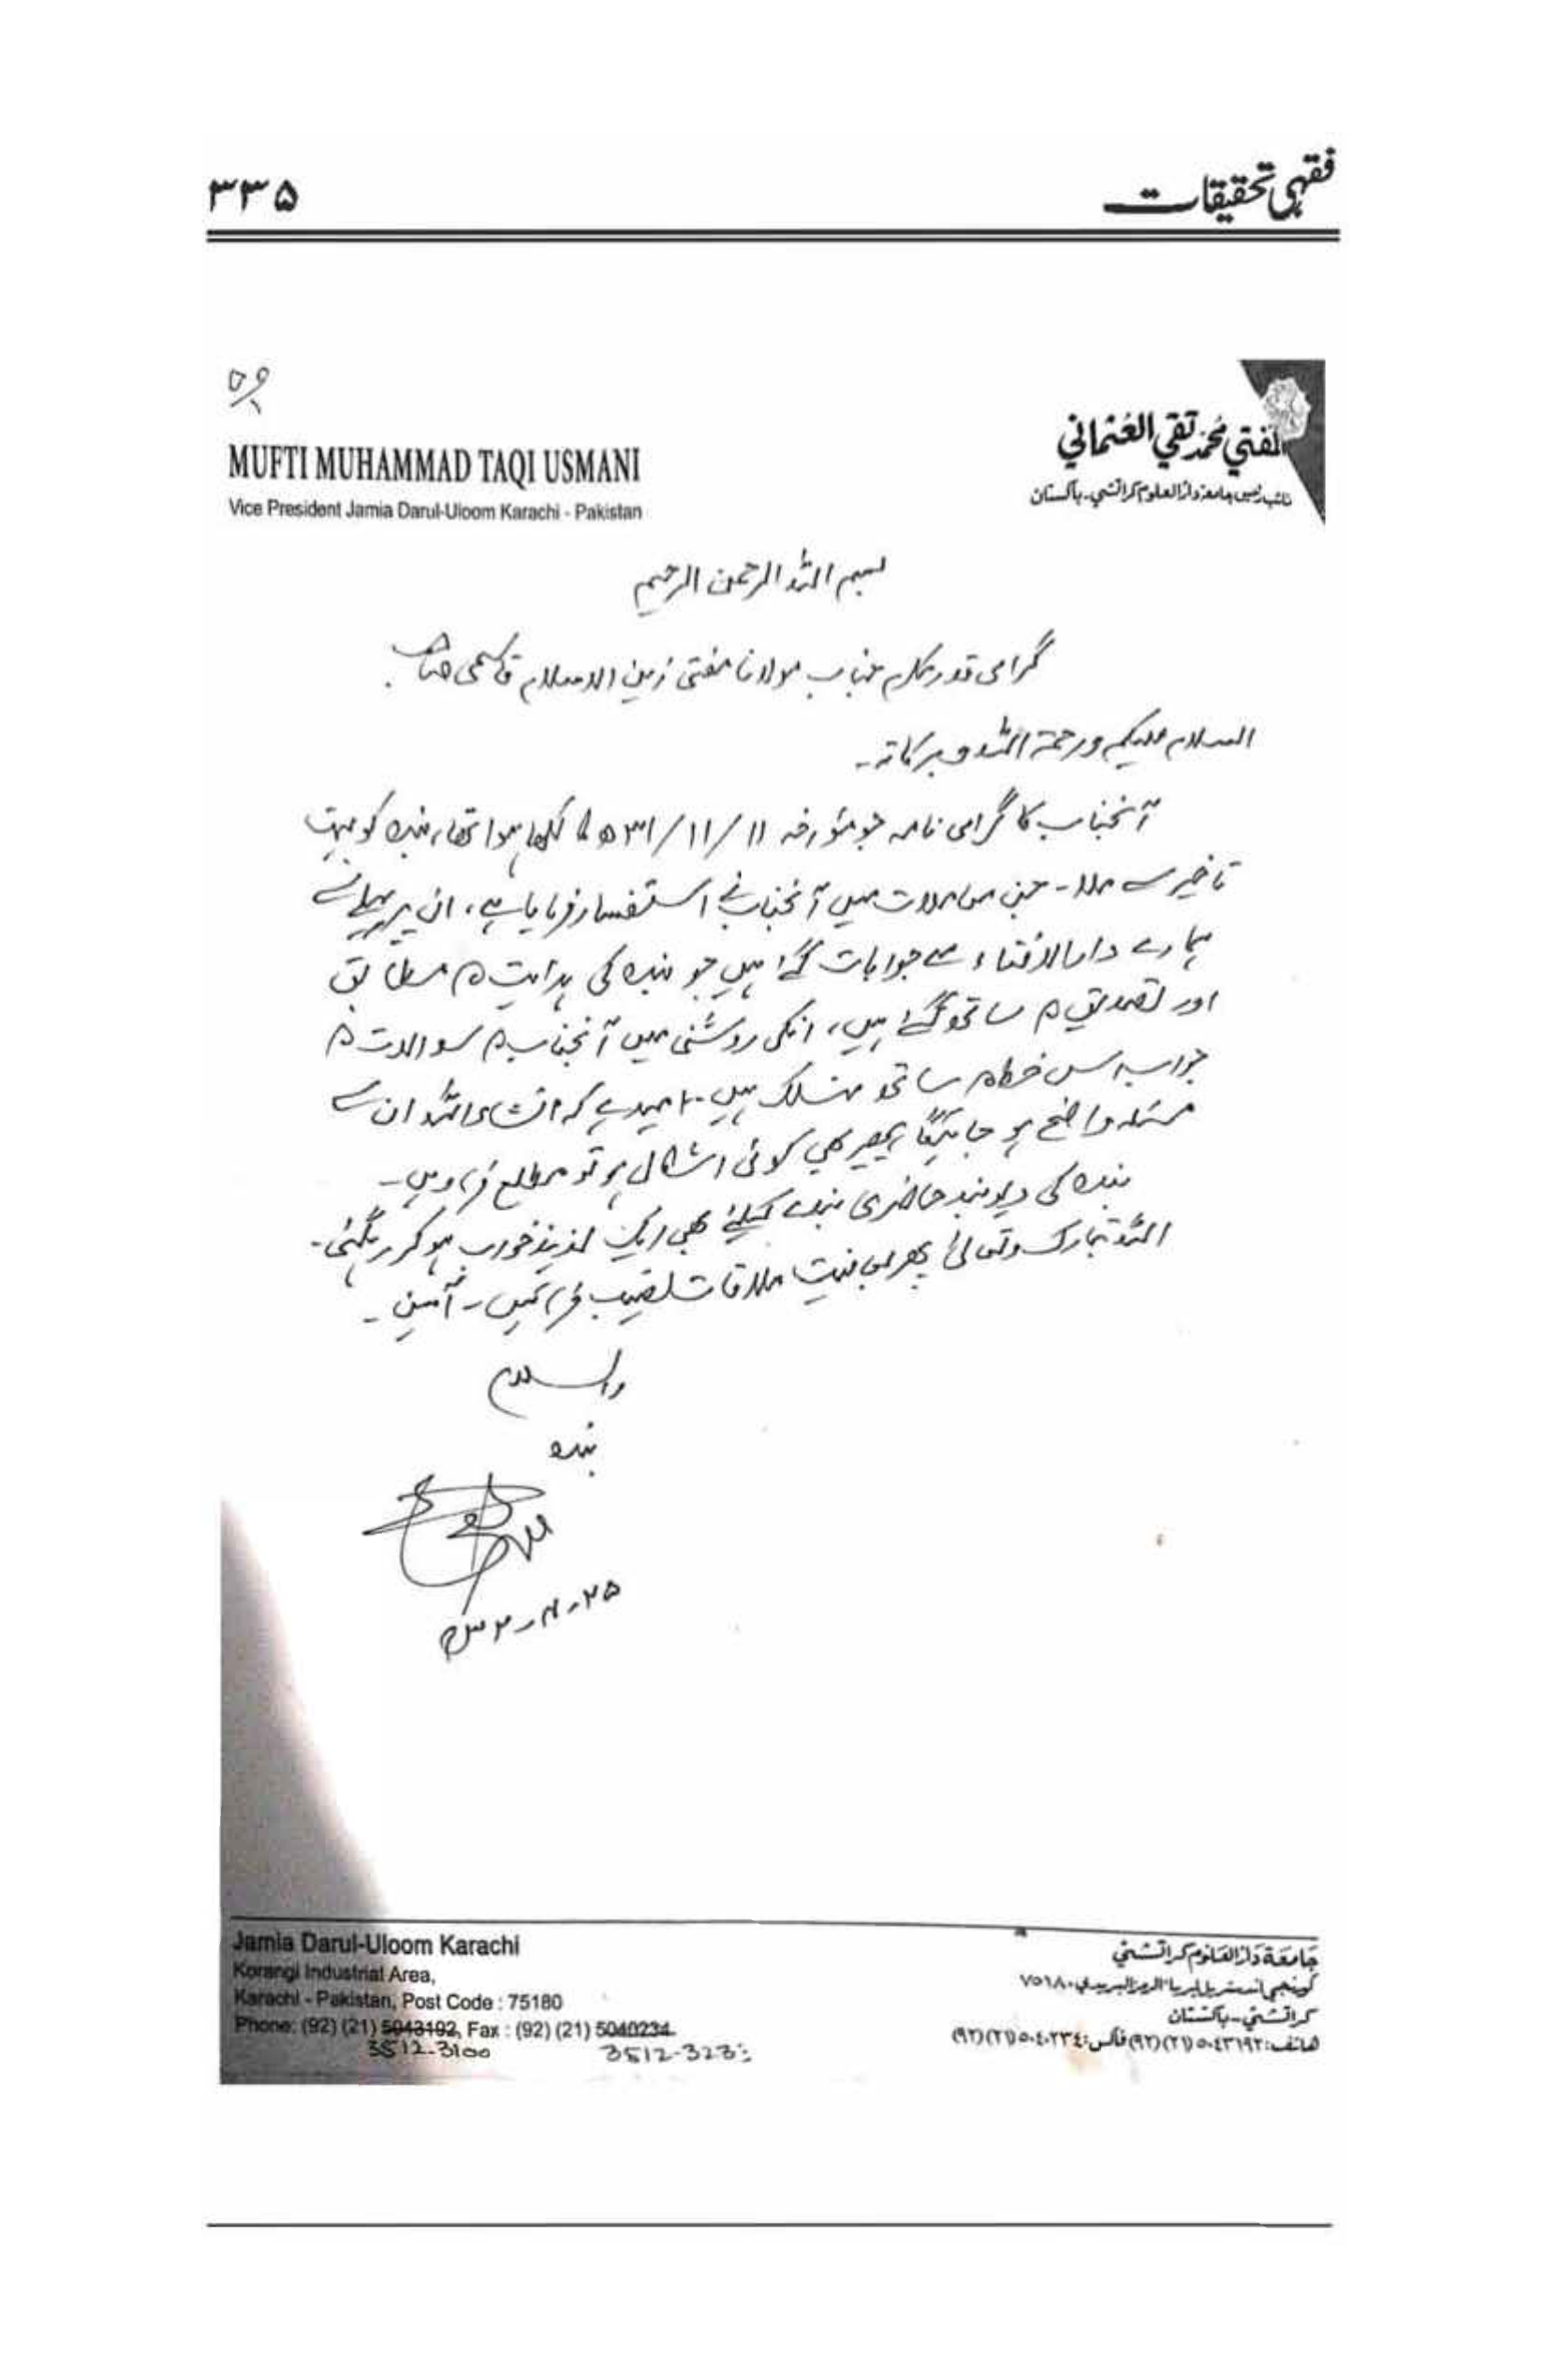 فقہی تحقیقات
۳۳۵
MUFTI MUHAMMAD TAQI USMANI
Vice President Jamia Darul-Uloom Karachi - Pakistan
المفتي محمد تقي العثماني
نائب رئيس جامعة دار العلوم كراتشي - باكستان
بسم اللہ الرحمن الرحیم
گرامی قدر مکرم جناب مولانا مفتی زین الاسلام قاسمی صاحب
السلام علیکم ورحمۃ اللہ وبرکاتہ۔
آنجناب کا گرامی نامہ جو مؤرخہ ۱۱/۱۱/۳۱ھ کا لکھا ہوا تھا، بندہ کو بہت
تاخیر سے ملا۔ جن معاملات میں آنجناب نے استفسار فرمایا ہے، ان پر پہلے سے
ہمارے دارالافتاء سے جوابات گئے ہیں جو بندہ کی ہدایت کے مطابق
اور تصدیق کے ساتھ گئے ہیں، انکی روشنی میں آنجناب کے سوالات کے
جواب اس خط کے ساتھ منسلک ہیں۔ امید ہے کہ انشاء اللہ ان سے
مسئلہ واضح ہو جائیگا پھر بھی کوئی اشکال ہو تو مطلع فرماویں۔
بندہ کی دیوبند حاضری بندے کیلئے بھی ایک لذیذ خواب ہو کر رہگئی۔
اللہ تبارک وتعالیٰ پھر بعافیت ملاقات نصیب فرمائیں۔ آمین۔
والسلام
بندہ
۲۵-۴-۳۲ھ
Jamia Darul-Uloom Karachi
Korangi Industrial Area,
Karachi - Pakistan, Post Code : 75180
Phone: (92) (21) 5043192, Fax : (92) (21) 5040234
3512-3100 3512-323
جامعة دار العلوم كراتشي
كورنجي اندستريل ايريا الرمز البريدي: ٧٥١٨٠
كراتشي - باكستان
هاتف: ٥٠٤٣١٩٢ (٢١) (٩٢) فاكس: ٥٠٤٠٢٣٤ (٢١) (٩٢)